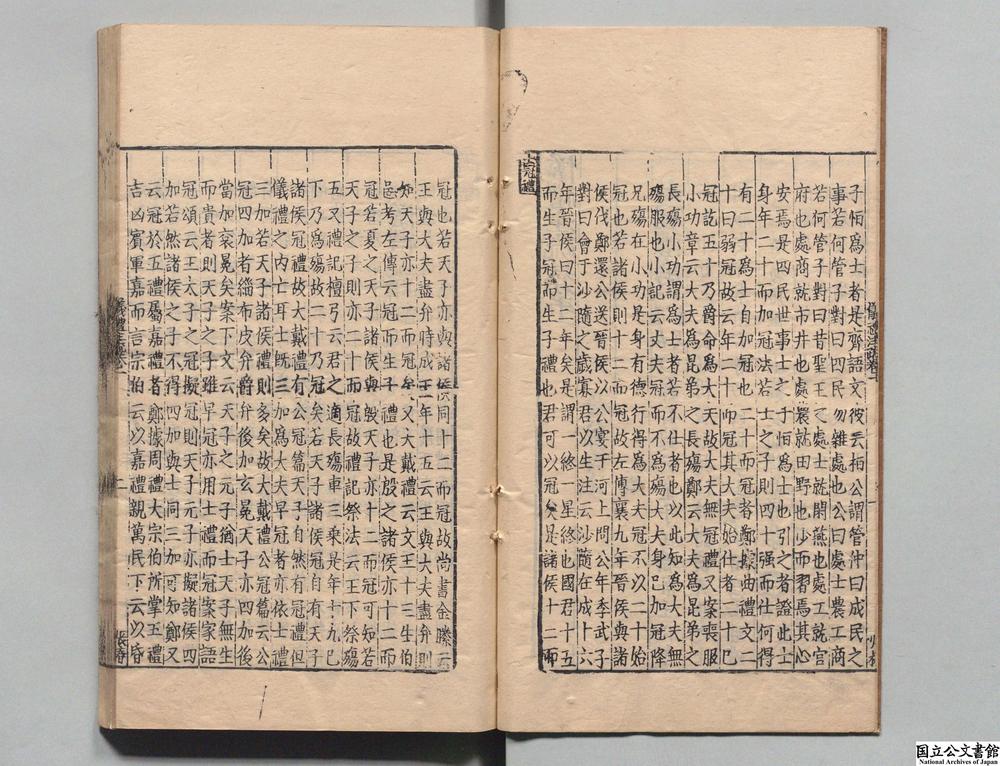 士冠禮
子恒爲士者是齊語文彼云桓公謂管仲曰成民之
事若何管子對曰四民勿雜處也公曰處士農工商
若何管子對曰昔聖王之處士就閑燕也處工就官
府也處商就市井也處農就田野也少而習焉其心
安焉是四民世事士之子恒爲士也引之者證此士
身年二十而加冠法若士之子則四十强而仕何得
有二十爲士自加冠也二十而冠者鄭據曲禮文二
十曰弱冠故云年二十而冠其大夫始仕者二十巳
冠訖五十乃爵命爲大夫故大夫無冠禮又案喪服
小功章云大夫爲昆弟之長殤鄭云大夫爲昆弟之
長殤小功謂爲士者若不仕者也以此知爲大夫無
殤服也小記云丈夫冠而不爲殤大夫身巳加冠降
兄殤在小功是身有德行得爲大夫冠不以二十始
冠也若諸侯則十二而冠故左傳襄九年晉侯與諸
侯伐鄭還公送晉侯以公宴于河上問公年季武子
對曰會于沙隨之歲寡君以生注云沙隨在成十六
年晉侯曰十二年矣是謂一終一星終也國君十五
而生子冠而生子禮也君可以冠矣是諸侯十二而
冠也若天子亦與諸侯同十二而冠故尚書金縢云
王與大夫盡弁時成王年十五云王與大夫盡弁則
知天子亦十二而冠矣又大戴禮云文王十三生伯
邑考左傳云冠而生子禮也是殷之諸侯亦十二而
冠若夏之天子諸侯與殷天子亦十二而冠可知若
天子之子則亦二十而冠故禮記祭法云王下祭殤
五又禮記檀弓云君之適長殤車三乘是年十九巳
下乃爲殤故二十乃冠矣若天子諸侯冠自有天子
諸侯冠禮故大戴禮有公冠篇天子自然有冠禮但
儀禮之内亡耳士旣三加爲大夫早冠者亦依士禮
三加若天子諸侯禮則多矣故大戴禮公冠篇云公
冠四加者緇布皮弁爵弁後加玄冕天子亦四加後
當加衮冕矣案下文云天子之元子猶士天子無生
而貴者則天子之子雖早冠亦用士禮而冠案家語
冠頌云王太子之冠擬冠則天子元子亦擬諸侯四
加若然諸侯之子不得四加與士同三加可知鄭又
云冠於五禮屬嘉禮者鄭據周禮大宗伯所掌五禮
吉凶賓軍嘉而言宗伯云以嘉禮親萬民下云以昏
国立公文書館
National Archives of Japan